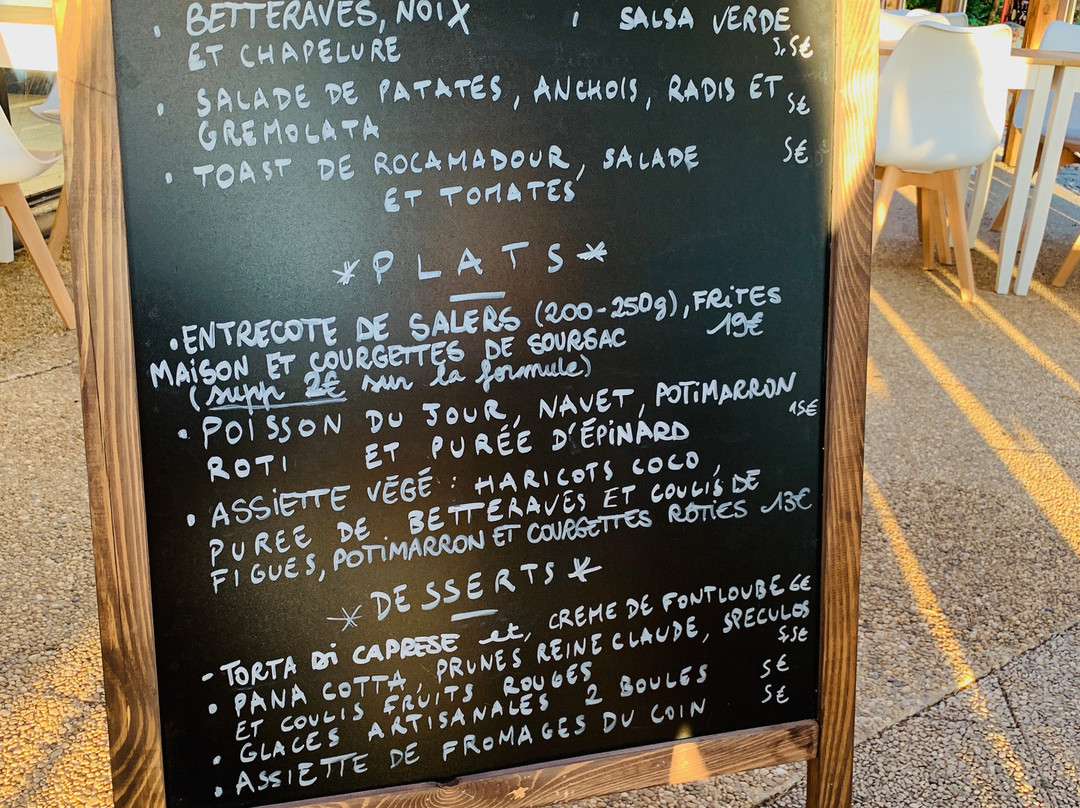 • BETTERAVES, NOIX, SALSA VERDE
ET CHAPELURE 5,5€
• SALADE DE PATATES, ANCHOIS, RADIS ET
GREMOLATA 5€
• TOAST DE ROCAMADOUR, SALADE 5€
ET TOMATES
* PLATS *
• ENTRECOTE DE SALERS (200-250g), FRITES
MAISON ET COURGETTES DE SOURSAC 19€
(supp 2€ sur la formule)
• POISSON DU JOUR, NAVET, POTIMARRON
ROTI ET PURÉE D'ÉPINARD 15€
• ASSIETTE VÉGÉ : HARICOTS COCO,
PUREE DE BETTERAVES ET COULIS DE
FIGUES, POTIMARRON ET COURGETTES RÔTIES 13€
* DESSERTS *
- TORTA DI CAPRESE et, CREME DE FONTLOUBE 6€
• PANA COTTA, PRUNES REINE CLAUDE, SPECULOS
ET COULIS FRUITS ROUGES 5,5€
• GLACES ARTISANALES 2 BOULES 5€
• ASSIETTE DE FROMAGES DU COIN 5€